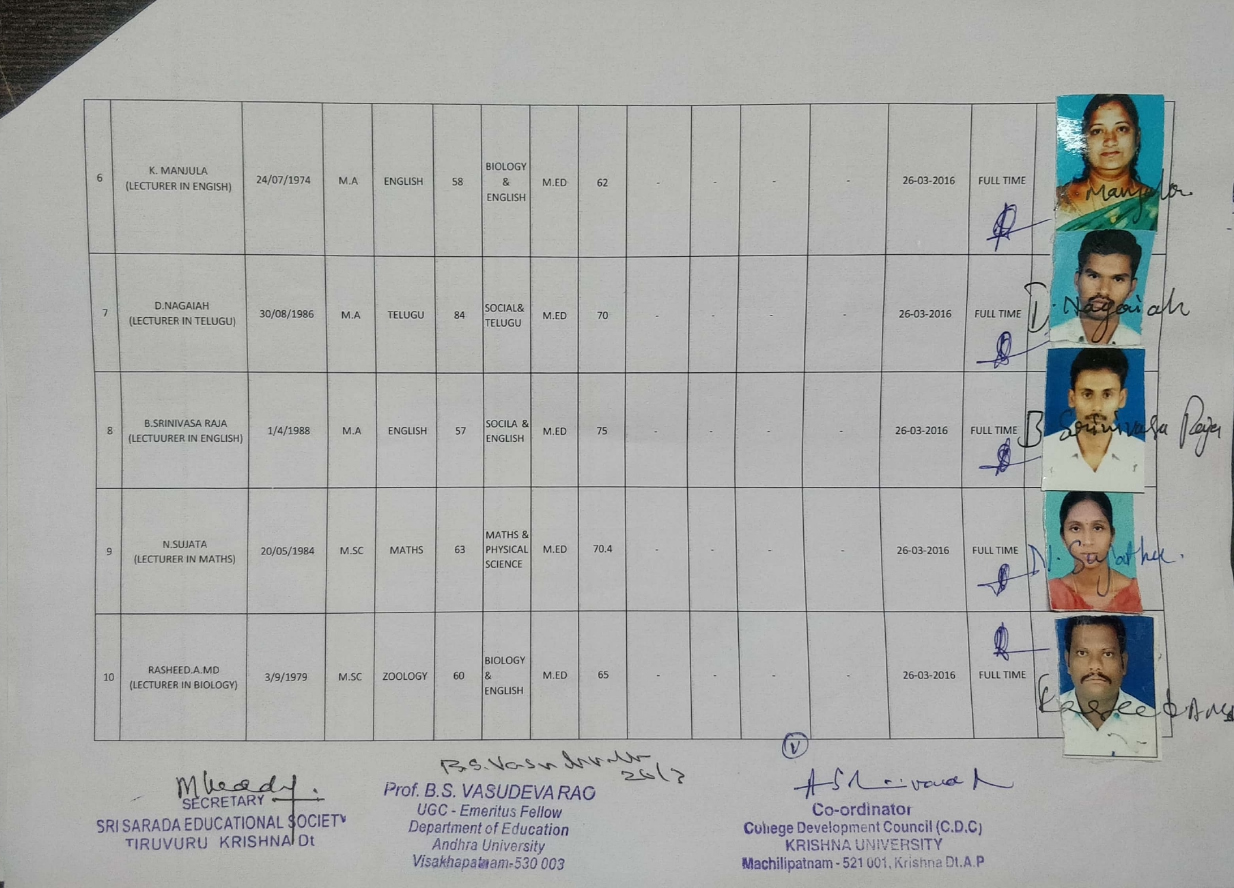 6 K. MANJULA (LECTURER IN ENGISH) 24/07/1974 M.A ENGLISH 58 BIOLOGY & ENGLISH M.ED 62 - - - - 26-03-2016 FULL TIME
Manjula
7 D.NAGAIAH (LECTURER IN TELUGU) 30/08/1986 M.A TELUGU 84 SOCIAL& TELUGU M.ED 70 - - - - 26-03-2016 FULL TIME
D. Nagaiah
8 B.SRINIVASA RAJA (LECTUURER IN ENGLISH) 1/4/1988 M.A ENGLISH 57 SOCILA & ENGLISH M.ED 75 - - - - 26-03-2016 FULL TIME
B Srinivasa Raja
9 N.SUJATA (LECTURER IN MATHS) 20/05/1984 M.SC MATHS 63 MATHS & PHYSICAL SCIENCE M.ED 70.4 - - - - 26-03-2016 FULL TIME
N. Sujatha.
10 RASHEED.A.MD (LECTURER IN BIOLOGY) 3/9/1979 M.SC ZOOLOGY 60 BIOLOGY & ENGLISH M.ED 65 - - - - 26-03-2016 FULL TIME
SECRETARY
SRI SARADA EDUCATIONAL SOCIETY
TIRUVURU KRISHNA Dt
B.S.Vasudeva
26/3
Prof. B.S. VASUDEVA RAO
UGC - Emeritus Fellow
Department of Education
Andhra University
Visakhapatnam-530 003
Co-ordinator
College Development Council (C.D.C)
KRISHNA UNIVERSITY
Machilipatnam - 521 001, Krishna Dt.A.P